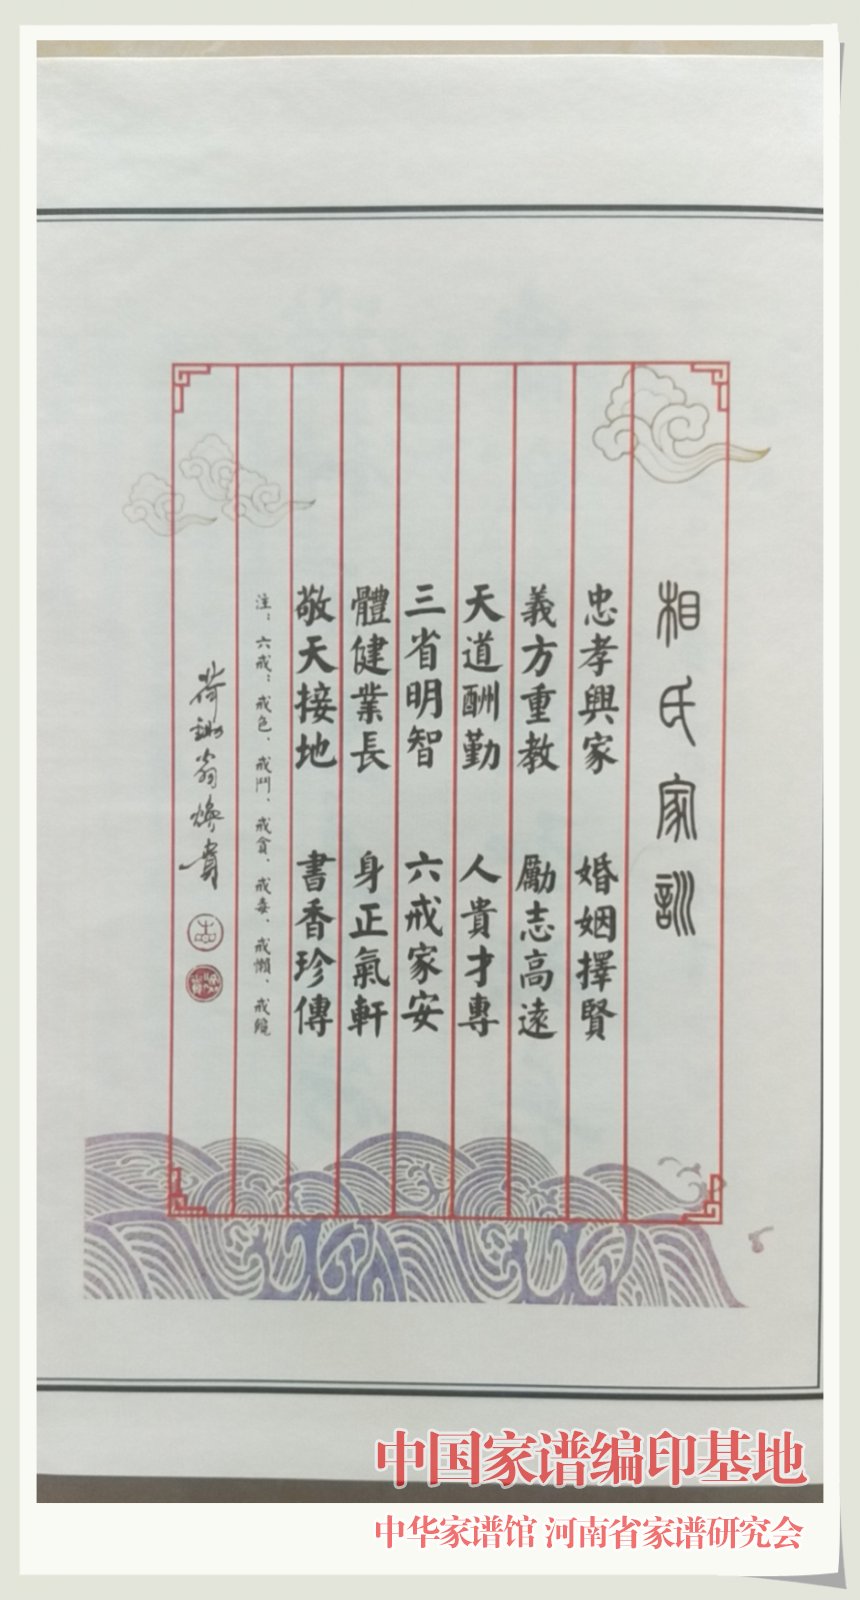 相氏家訓
忠孝興家 婚姻擇賢
義方重教 勵志高遠
天道酬勤 人貴才專
三省明智 六戒家安
體健業長 身正氣軒
敬天接地 書香珍傳
注：六戒：戒色、戒鬥、戒貪、戒毒、戒懶、戒饞
中国家谱编印基地
中华家谱馆 河南省家谱研究会